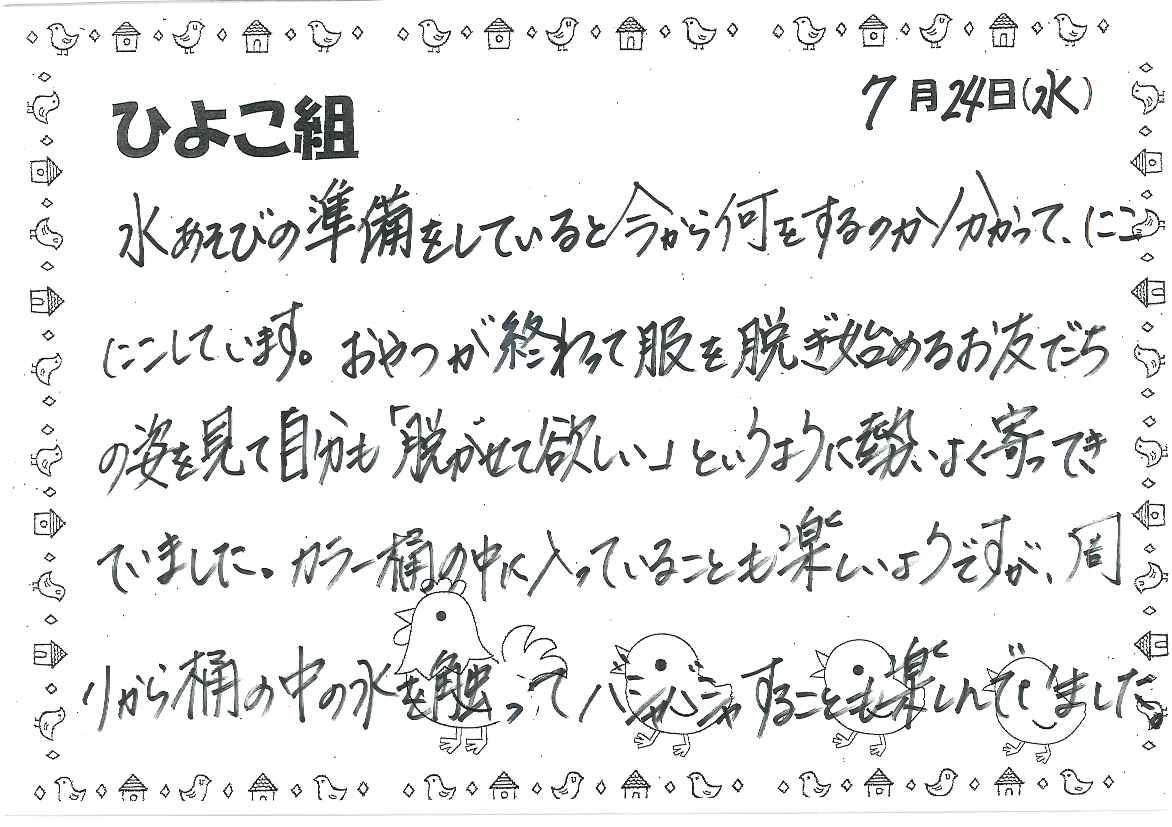 7月24日(水)
ひよこ組
水あそびの準備をしていると今から何をするのか分かって、にこ
にこしています。おやつが終わって服を脱ぎ始めるお友だち
の姿を見て自分も「脱がせて欲しい」というように勢いよく寄ってき
ていました。カラー桶の中に入っていることも楽しいようですが、周
りから桶の中の水を触ってバシャバシャすることも楽しんでいました。